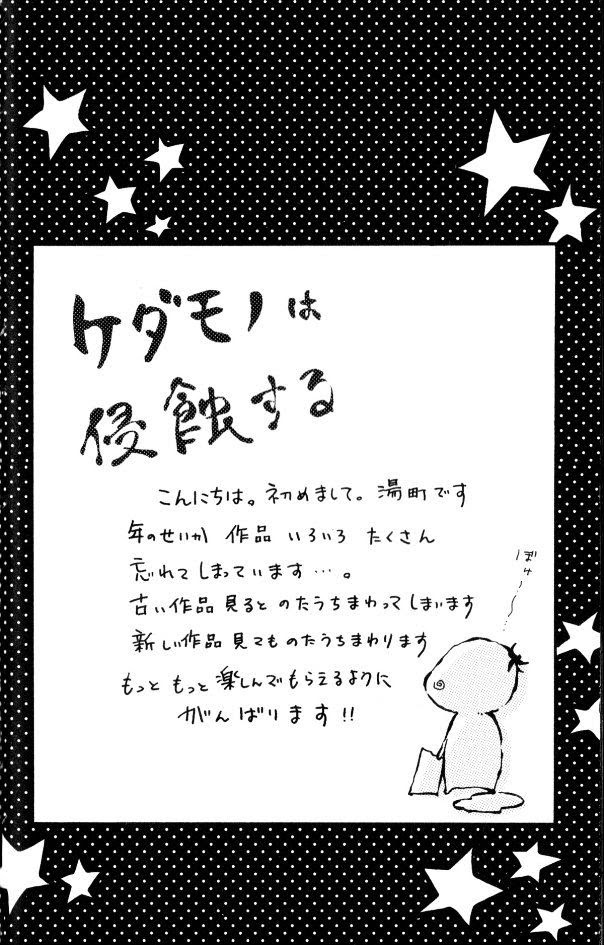 ケダモノは
侵蝕する
こんにちは。初めまして。湯町です
年のせいか 作品 いろいろ たくさん
忘れてしまっています…。
古い作品見るとのたうちまわってしまいます
新しい作品見てものたうちまわります
もっと もっと 楽しんでもらえるように
がんばります!!
ぼけ〜〜